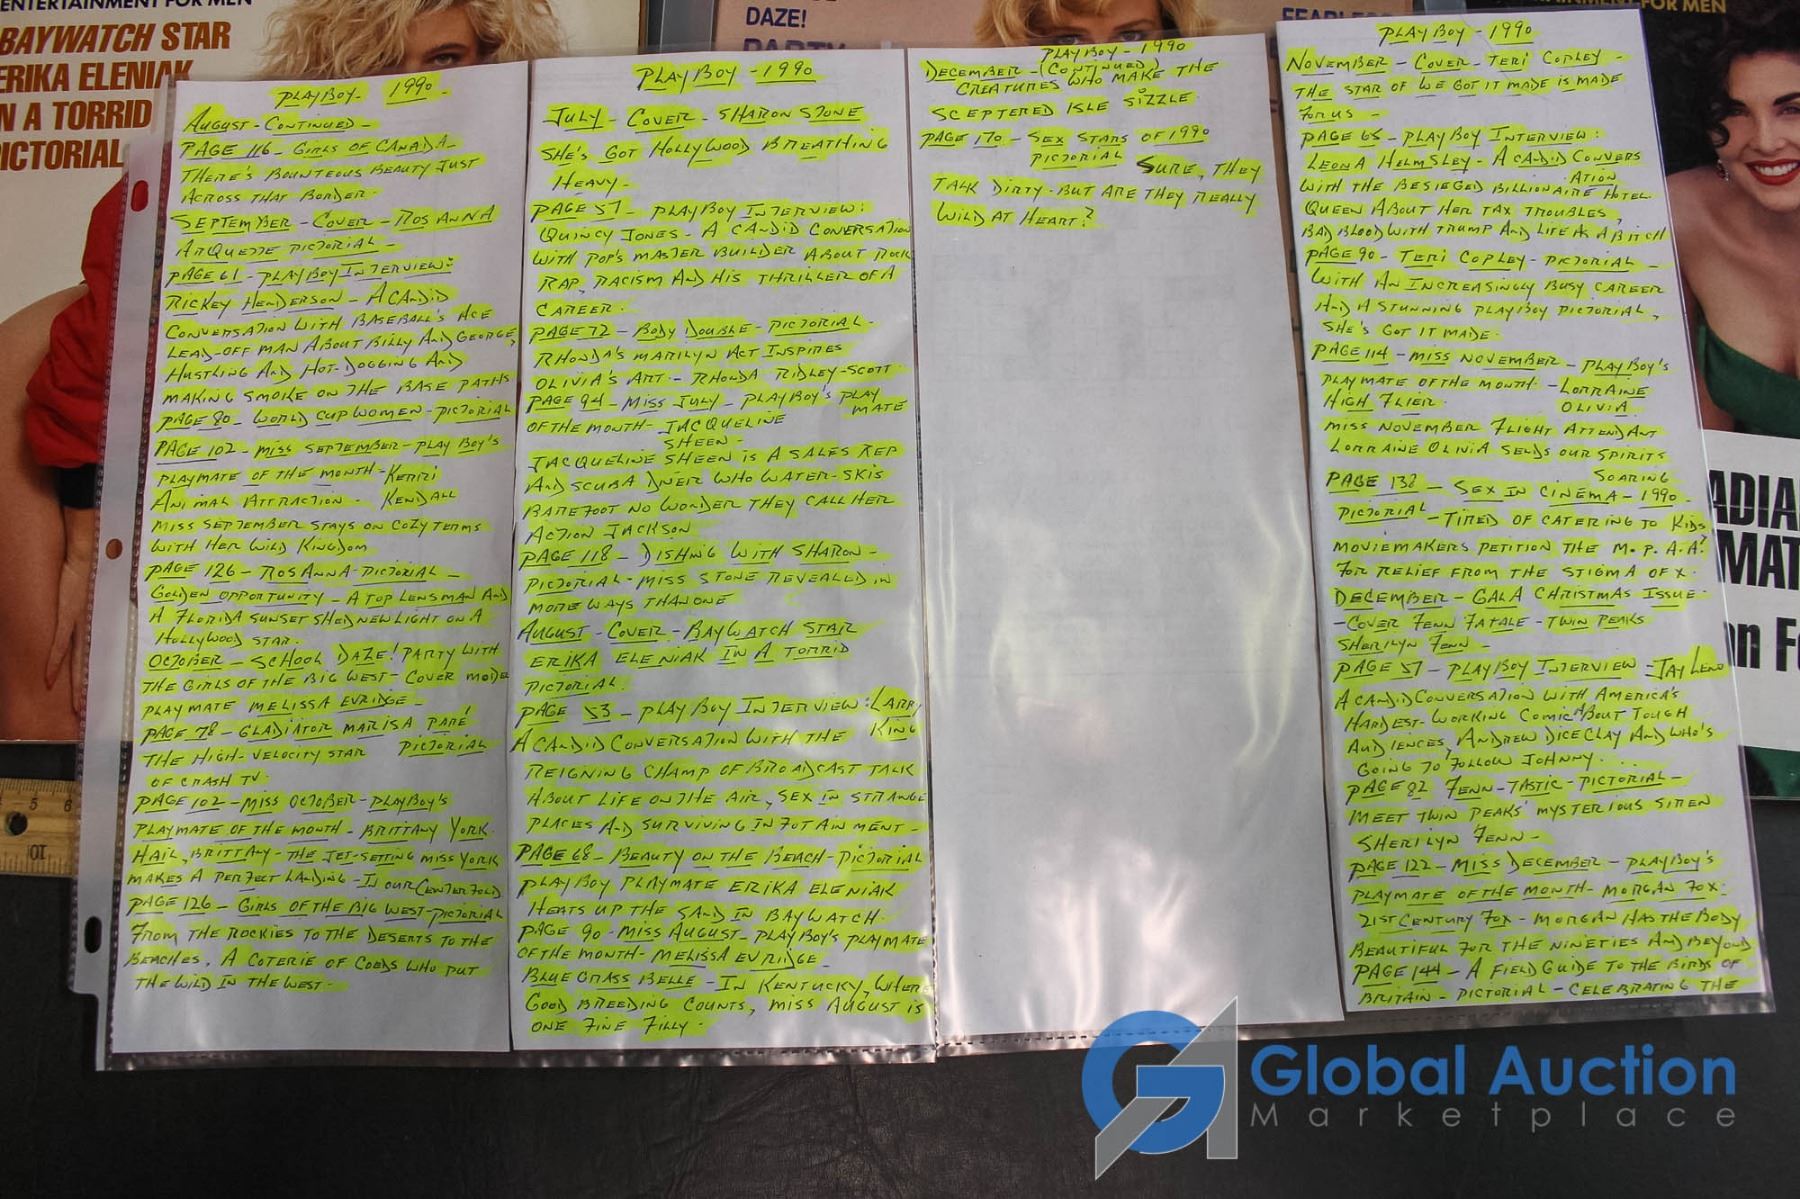 ENTERTAINMENT FOR MEN
BAYWATCH STAR
ERIKA ELENIAK
IN A TORRID
PICTORIAL
DAZE!
PARTY
FEARLESS
PLAYBOY - 1990
AUGUST - CONTINUED -
PAGE 116 - GIRLS OF CANADA -
THERE'S BOUNTEOUS BEAUTY JUST
ACROSS THAT BORDER.
SEPTEMBER - COVER - ROSANNA
ARQUETTE PICTORIAL -
PAGE 61 - PLAYBOY INTERVIEW:
RICKEY HENDERSON - A CANDID
CONVERSATION WITH BASEBALL'S ACE
LEAD-OFF MAN ABOUT BILLY AND GEORGE,
HUSTLING AND HOT-DOGGING AND
MAKING SMOKE ON THE BASE PATHS
PAGE 80 - WORLD CUP WOMEN - PICTORIAL
PAGE 102 - MISS SEPTEMBER - PLAYBOY'S
PLAYMATE OF THE MONTH - KERRI
ANIMAL ATTRACTION - KENDALL
MISS SEPTEMBER STAYS ON COZY TERMS
WITH HER WILD KINGDOM
PAGE 126 - ROSANNA - PICTORIAL -
GOLDEN OPPORTUNITY - A TOP LENSMAN AND
A FLORIDA SUNSET SHED NEW LIGHT ON A
HOLLYWOOD STAR.
OCTOBER - SCHOOL DAZE! PARTY WITH
THE GIRLS OF THE BIG WEST - COVER MODEL
PLAYMATE MELISSA EVRIDGE -
PAGE 78 - GLADIATOR MARISA PARÉ
THE HIGH-VELOCITY STAR PICTORIAL
OF CRASH TV.
PAGE 102 - MISS OCTOBER - PLAYBOY'S
PLAYMATE OF THE MONTH - BRITTANY YORK.
HAIL, BRITTANY - THE JET-SETTING MISS YORK
MAKES A PERFECT LANDING - IN OUR CENTERFOLD
PAGE 126 - GIRLS OF THE BIG WEST - PICTORIAL
FROM THE ROCKIES TO THE DESERTS TO THE
BEACHES, A COTERIE OF COEDS WHO PUT
THE WILD IN THE WEST -
PLAYBOY - 1990
JULY - COVER - SHARON STONE
SHE'S GOT HOLLYWOOD BREATHING
HEAVY -
PAGE 57 - PLAYBOY INTERVIEW:
QUINCY JONES - A CANDID CONVERSATION
WITH POP'S MASTER BUILDER ABOUT ROCK
RAP, RACISM AND HIS THRILLER OF A
CAREER.
PAGE 72 - BODY DOUBLE - PICTORIAL -
RHONDA'S MARILYN ACT INSPIRES
OLIVIA'S ART - RHONDA RIDLEY-SCOTT
PAGE 94 - MISS JULY - PLAYBOY'S PLAY
MATE
OF THE MONTH - JACQUELINE
SHEEN -
JACQUELINE SHEEN IS A SALES REP
AND SCUBA DIVER WHO WATER-SKIS
BAREFOOT NO WONDER THEY CALL HER
ACTION JACKSON
PAGE 118 - DISHING WITH SHARON -
PICTORIAL - MISS STONE REVEALED IN
MORE WAYS THAN ONE
AUGUST - COVER - BAYWATCH STAR
ERIKA ELENIAK IN A TORRID
PICTORIAL.
PAGE 53 - PLAYBOY INTERVIEW: LARRY
KING
A CANDID CONVERSATION WITH THE
REIGNING CHAMP OF BROADCAST TALK
ABOUT LIFE ON THE AIR, SEX IN STRANGE
PLACES AND SURVIVING INFOTAINMENT -
PAGE 68 - BEAUTY ON THE BEACH - PICTORIAL
PLAYBOY PLAYMATE ERIKA ELENIAK
HEATS UP THE SAND IN BAYWATCH.
PAGE 90 - MISS AUGUST - PLAYBOY'S PLAYMATE
OF THE MONTH - MELISSA EVRIDGE
BLUE GRASS BELLE - IN KENTUCKY, WHERE
GOOD BREEDING COUNTS, MISS AUGUST IS
ONE FINE FILLY.
PLAYBOY - 1990
DECEMBER - (CONTINUED)
CREATURES WHO MAKE THE
SCEPTERED ISLE SIZZLE.
PAGE 170 - SEX STARS OF 1990
PICTORIAL SURE, THEY
TALK DIRTY - BUT ARE THEY REALLY
WILD AT HEART?
PLAYBOY - 1990
NOVEMBER - COVER - TERI COPLEY -
THE STAR OF WE GOT IT MADE IS MADE
FOR US -
PAGE 65 - PLAYBOY INTERVIEW:
LEONA HELMSLEY - A CANDID CONVERS
ATION
WITH THE BESIEGED BILLIONAIRE HOTEL
QUEEN ABOUT HER TAX TROUBLES,
BAD BLOOD WITH TRUMP AND LIFE AS A BITCH
PAGE 90 - TERI COPLEY - PICTORIAL -
WITH AN INCREASINGLY BUSY CAREER
AND A STUNNING PLAYBOY PICTORIAL,
SHE'S GOT IT MADE.
PAGE 114 - MISS NOVEMBER - PLAYBOY'S
PLAYMATE OF THE MONTH - LORRAINE
HIGH FLIER. OLIVIA
MISS NOVEMBER FLIGHT ATTENDANT
LORRAINE OLIVIA SENDS OUR SPIRITS
SOARING
PAGE 138 - SEX IN CINEMA - 1990 -
PICTORIAL - TIRED OF CATERING TO KIDS
MOVIEMAKERS PETITION THE M.P.A.A.
FOR RELIEF FROM THE STIGMA OF X.
DECEMBER - GALA CHRISTMAS ISSUE.
- COVER FENN FATALE - TWIN PEAKS
SHERILYN FENN -
PAGE 57 - PLAYBOY INTERVIEW - JAY LENO
A CANDID CONVERSATION WITH AMERICA'S
HARDEST-WORKING COMIC ABOUT TOUGH
AUDIENCES, ANDREW DICE CLAY AND WHO'S
GOING TO FOLLOW JOHNNY....
PAGE 82 FENN-TASTIC - PICTORIAL -
MEET TWIN PEAKS' MYSTERIOUS SIREN
SHERILYN FENN -
PAGE 122 - MISS DECEMBER - PLAYBOY'S
PLAYMATE OF THE MONTH - MORGAN FOX:
21ST CENTURY FOX - MORGAN HAS THE BODY
BEAUTIFUL FOR THE NINETIES AND BEYOND
PAGE 144 - A FIELD GUIDE TO THE BIRDS OF
BRITAIN - PICTORIAL - CELEBRATING THE
5 6
10
Global Auction
Marketplace